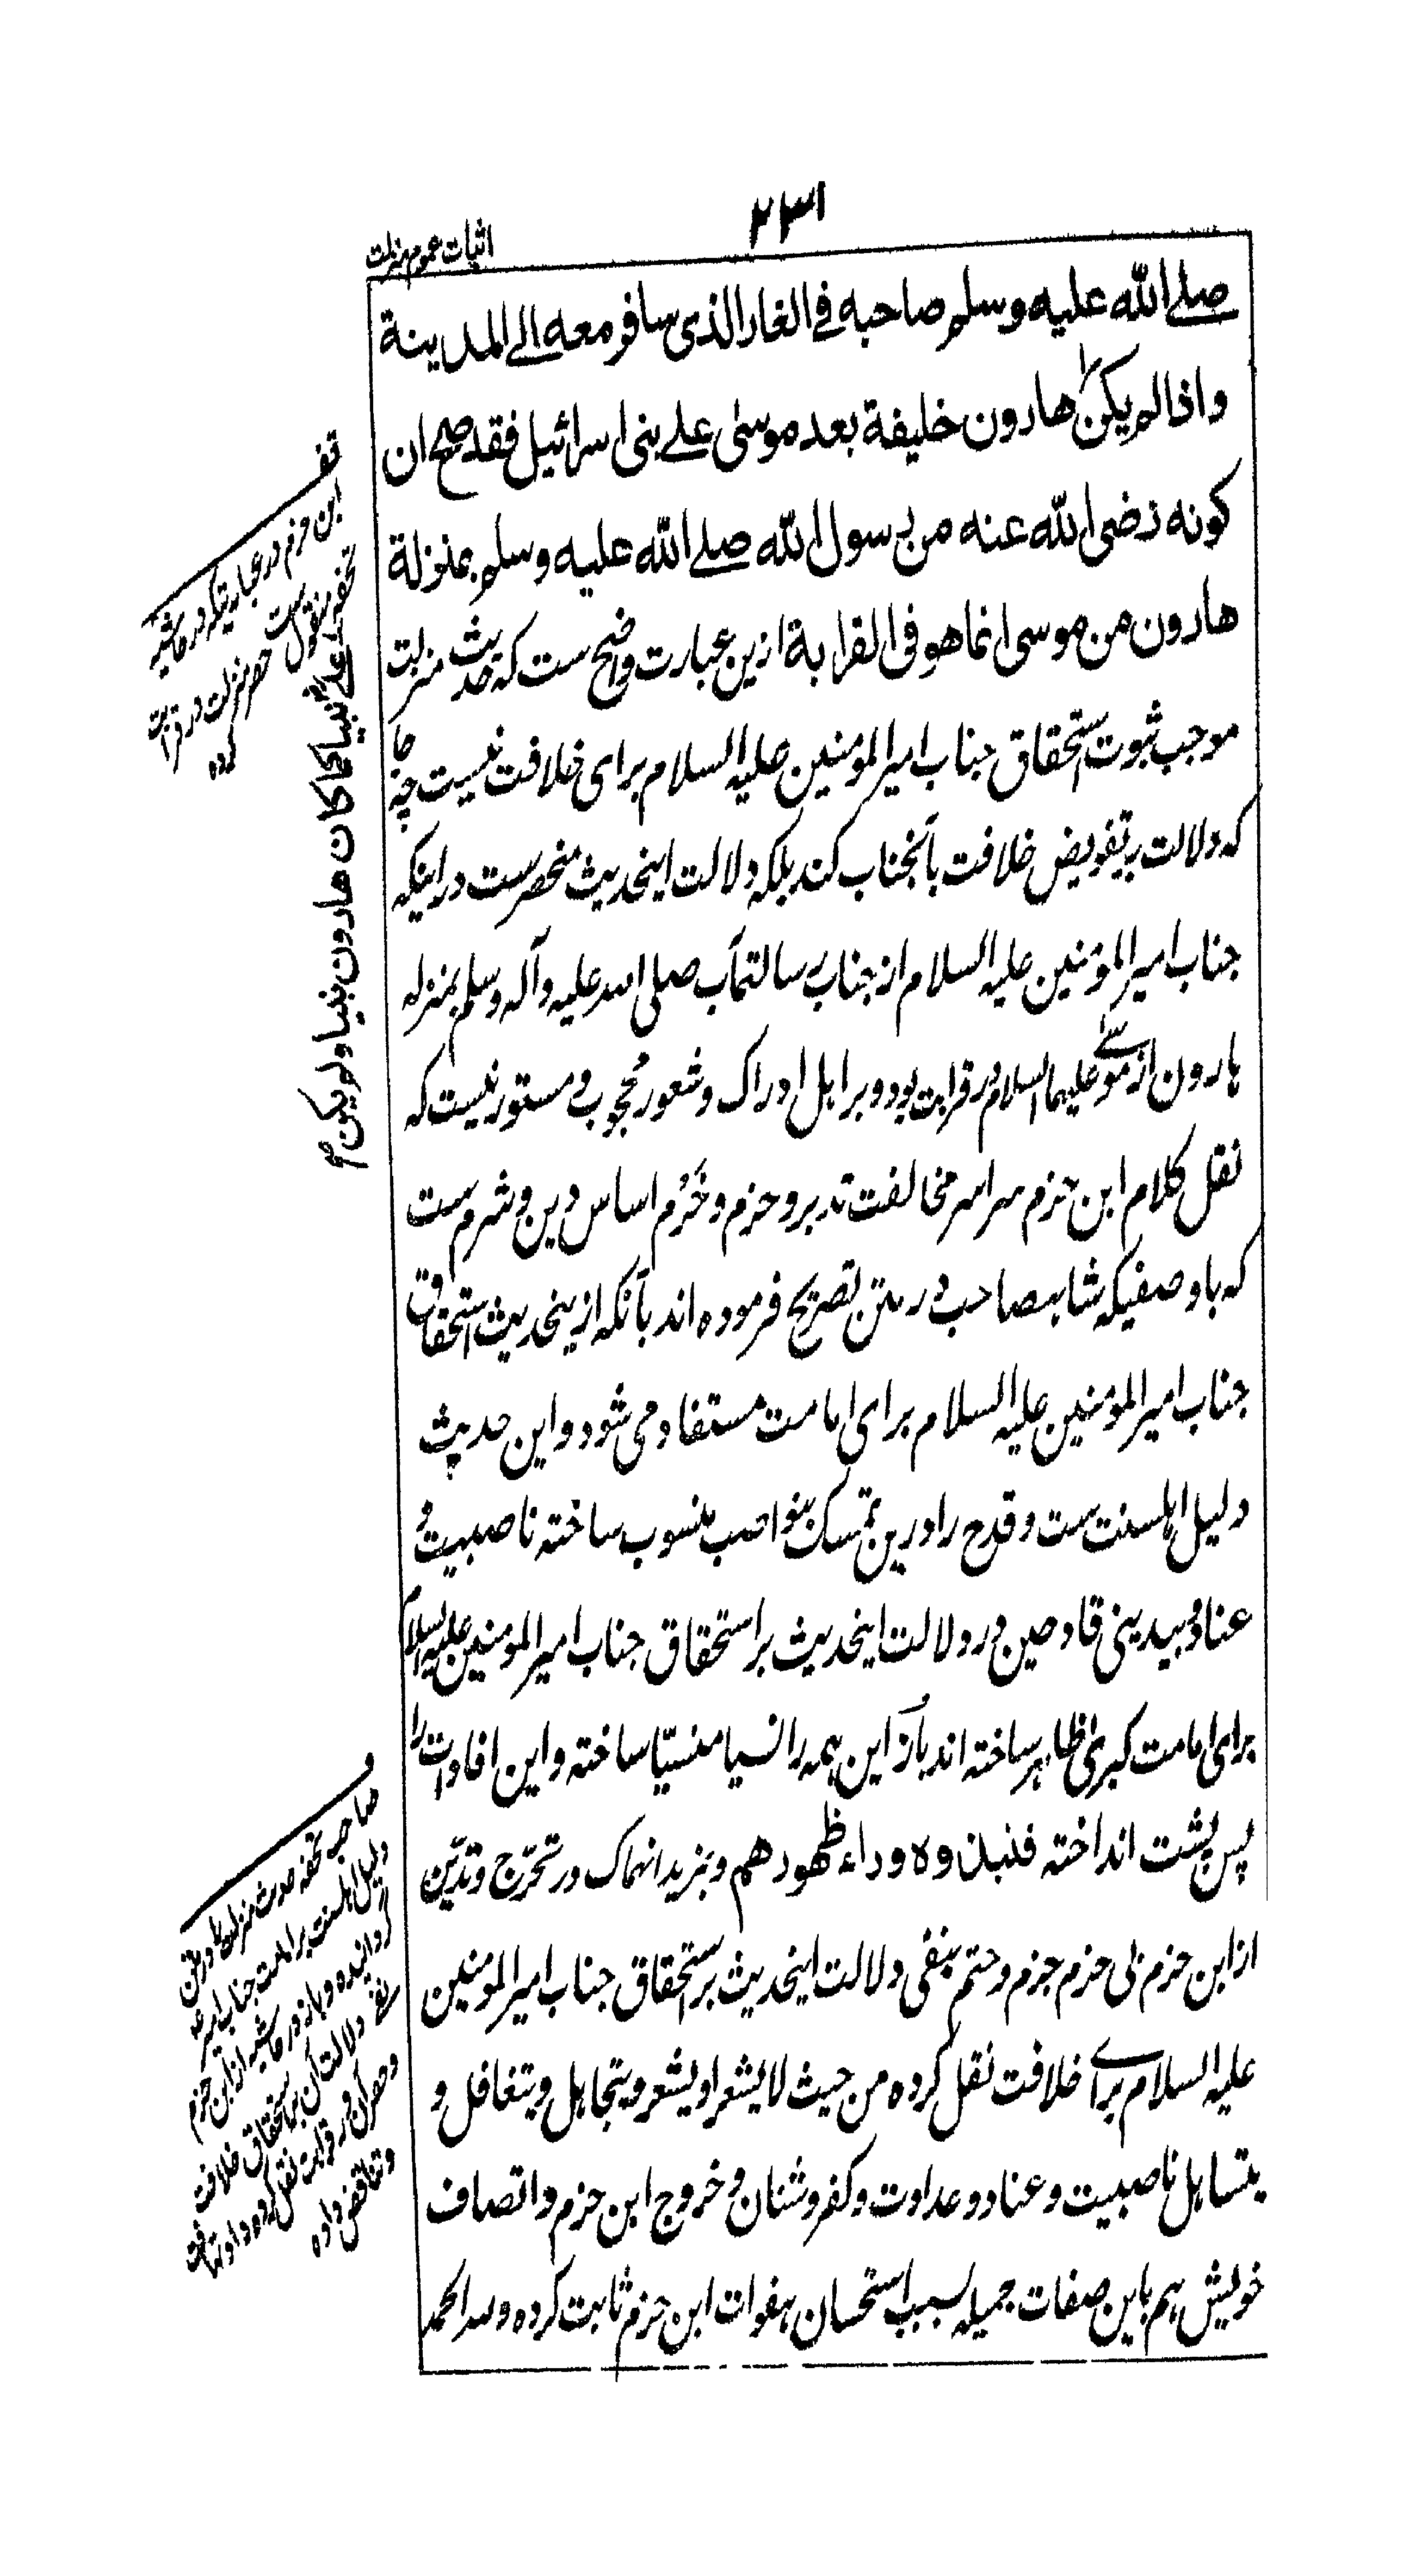 ۲۳۱
اثبات عموم منزلت
صلے الله علیه وسلم صاحبه فے الغار الذی سافر معه الے المدینة
واذا لم یکن هارون خلیفة بعد موسیٰ علے بنی اسرائیل فقد صح ان
کونه رضی الله عنه من رسول الله صلے الله علیه وسلم بمنزلة
هارون من موسی انما هو فی القرابة ازین عبارت واضح ست که حدیث منزلت
موجب ثبوت استحقاق جناب امیر المؤمنین علیه السلام برای خلافت نیست چه جا
که دلالت بر تفویض خلافت بآنجناب کند بلکه دلالت اینحدیث منحصرست در اینکه
جناب امیر المؤمنین علیه السلام از جناب رسالتمآب صلی الله علیه وآله وسلم بمنزله
هارون از موسے علیهما السلام در قرابت بود و بر اهل ادراک و شعور محجوب و مستور نیست که
نقل کلام ابن حزم سراسر مخالفت تدبر و حزم و خَرْم اساس دین و شرم ست
که با وصفیکه شاهصاحب در متن تصریح فرموده اند بآنکه ازینحدیث استحقاق
جناب امیر المؤمنین علیه السلام برای امامت مستفاد می شود و این حدیث
دلیل اهلسنت ست و قدح را درین تمسک بنواصب منسوب ساخته ناصبیت و
عناد و بیدینی قادحین در دلالت اینحدیث بر استحقاق جناب امیر المومنین علیه السلام
برای امامت کبریٰ ظاهر ساخته اند باز این همه را نسیا منسیّا ساخته و این افادات را
پس پشت انداخته فنبذوه وراء ظهورهم و بمزید انهماک در تحرّج و تدیّن
از ابن حزم بی حزم جزم و حتم بنفی دلالت اینحدیث بر استحقاق جناب امیر المومنین
علیه السلام براے خلافت نقل کرده من حیث لا یشعر او یشعر و یتجاهل و یتغافل و
یتساهل ناصبیت و عناد و عداوت و کفر و شنان و خروج ابن حزم و اتصاف
خویش هم باین صفات جمیله بسبب استحسان هفوات ابن حزم ثابت کرده ولله الحمد
ف
ابن حزم در عباریتکه در حاشیه
تحفه منقول ست
حصر منزلت در قرابت
کرده
علے نبیا کما کان هارون نبیا ولو یکن
ف
صاحب تحفه حدیث منزلت را در متن
دلیل اهلسنت بر امامت جناب امیر ع
گردانیده و باز در حاشیه از ابن حزم
نفی دلالت آن بر استحقاق خلافت
و حصر آن در قرابت نقل کرده داد تهافت
و تناقض داده